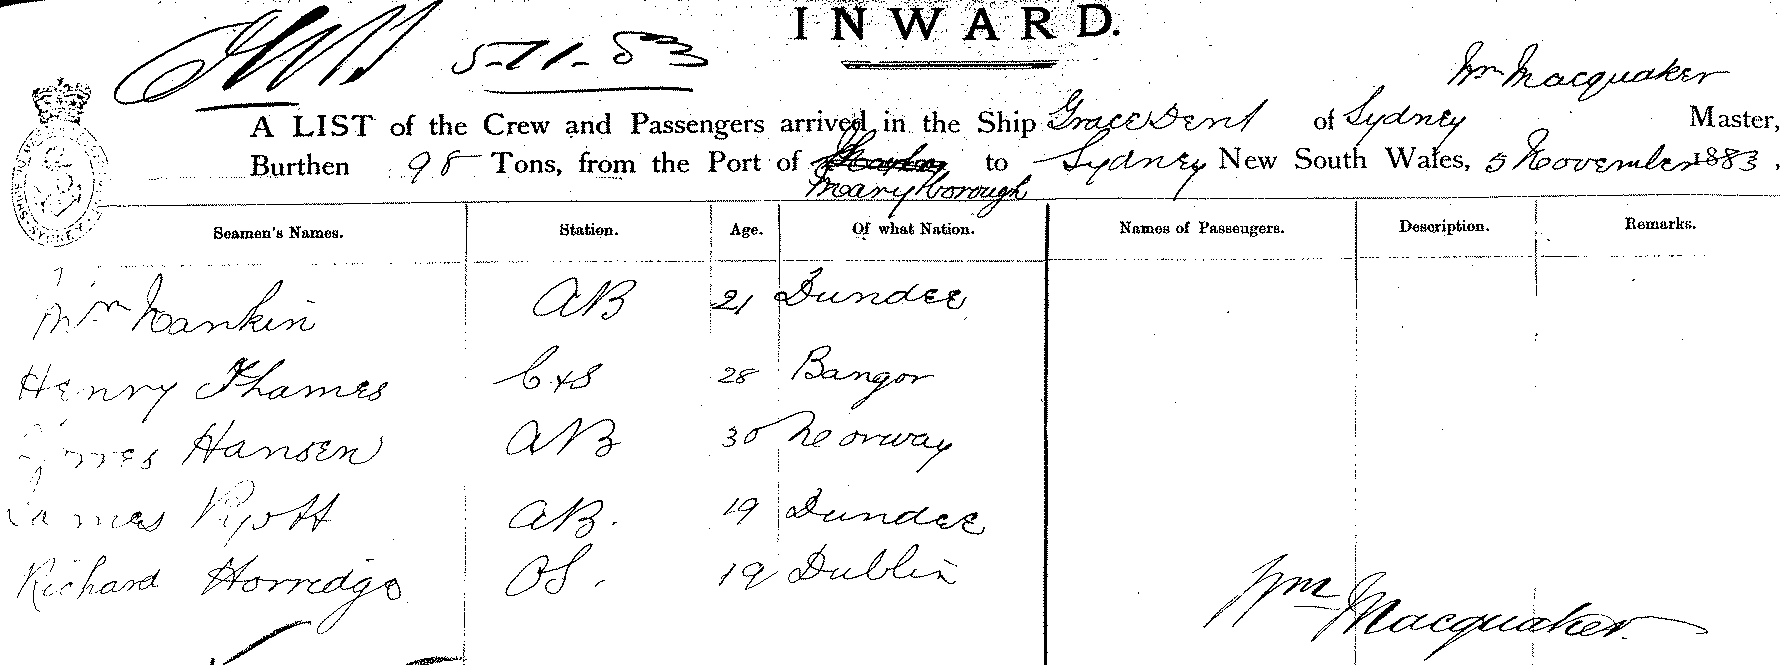 INWARD.
5-11-83
Wm Macquaker
A LIST of the Crew and Passengers arrived in the Ship Grace Dent of Sydney Master,
Burthen 98 Tons, from the Port of Maryborough to Sydney New South Wales, 5 November 1883.
Seamen's Names. Station. Age. Of what Nation. Names of Passengers. Description. Remarks.
Wm Nankin AB 21 Dundee
Henry Thames C&S 28 Bangor
Hansen AB 30 Norway
James Pyott AB. 19 Dundee
Richard Horredgo OS. 19 Dublin
Wm Macquaker.